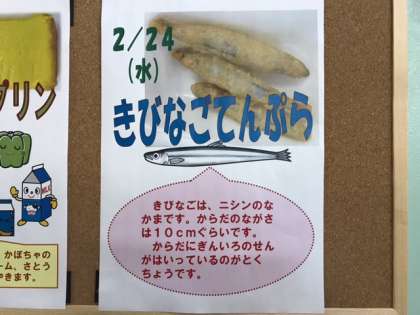 プリン
MILK
かぼちゃの
ーム、さとう
やきます。
2/24
(水)
きびなごてんぷら
きびなごは、ニシンのな
かまです。からだのながさ
は10cmぐらいです。
からだにぎんいろのせん
がはいっているのがとく
ちょうです。